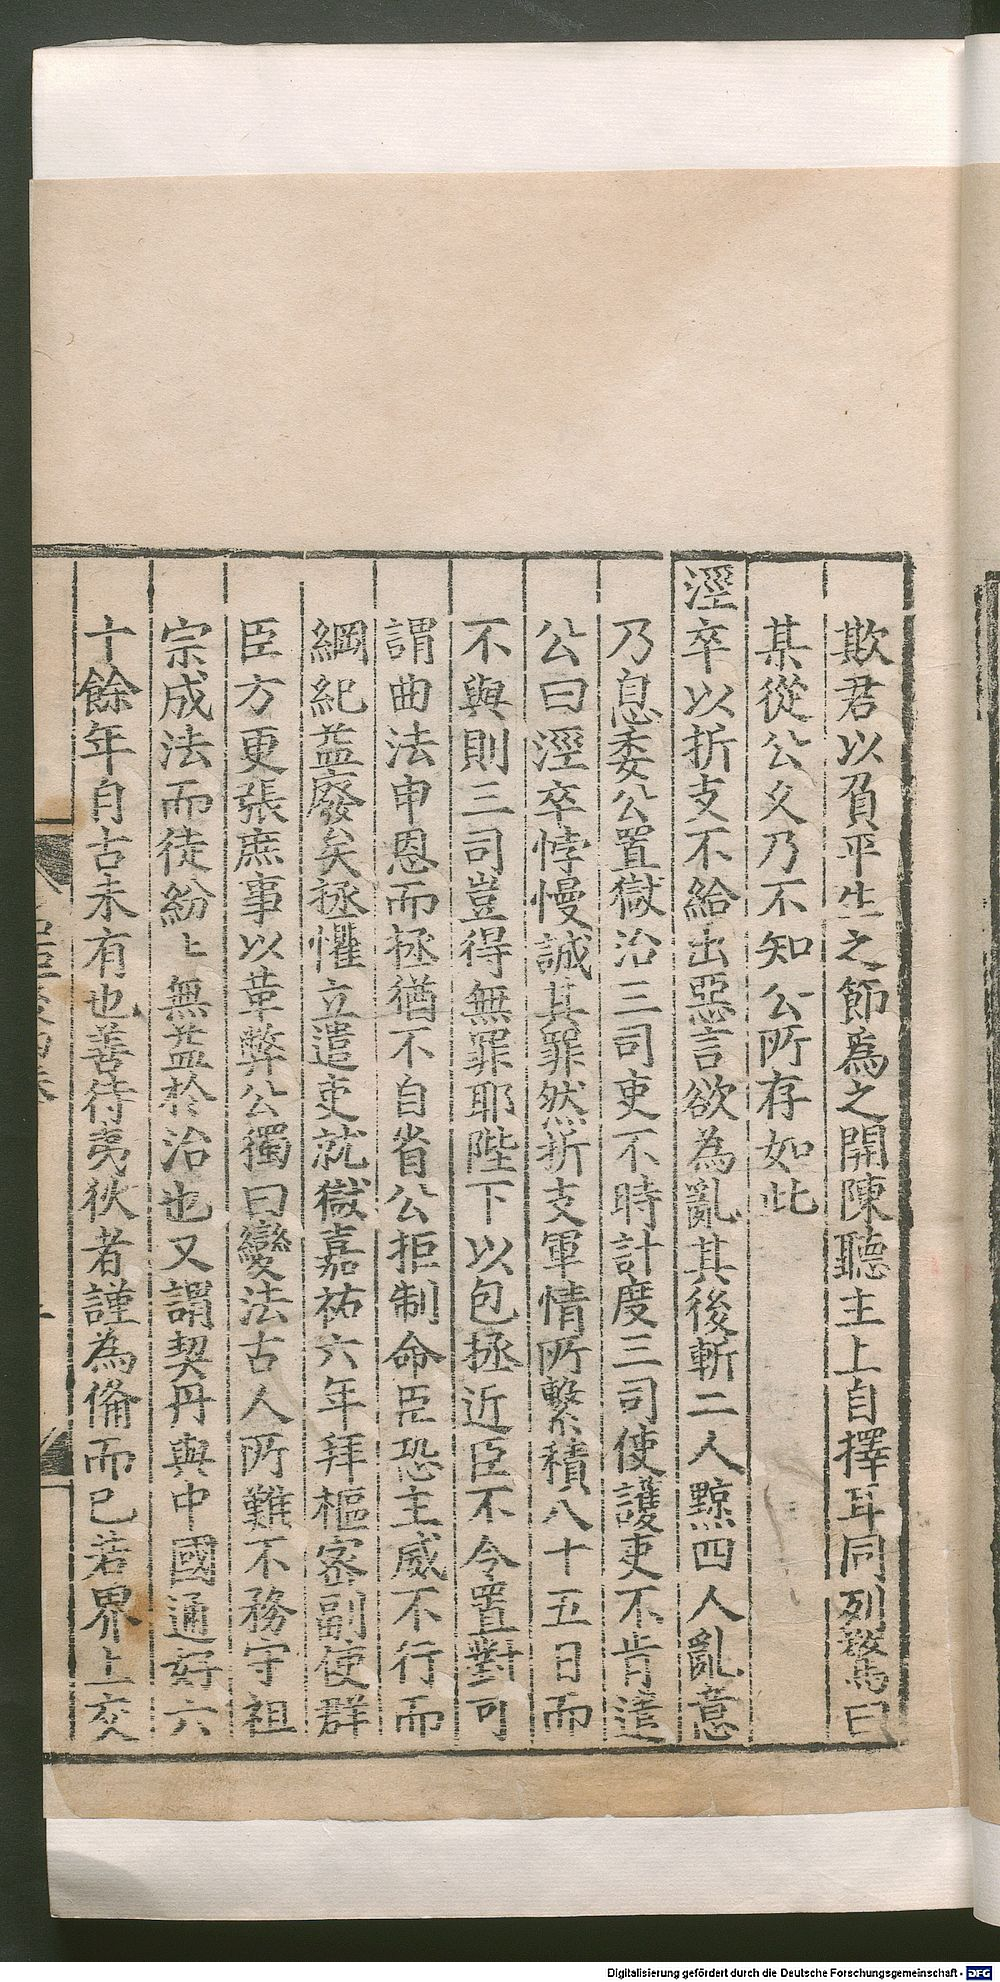 欺君以負平生之節爲之開陳聽主上自擇耳同列驚曰
某從公久乃不知公所存如此
涇卒以折支不給出惡言欲為亂其後斬二人黥四人亂意
乃息委公置獄治三司吏不時計度三司使護吏不肯遣
公曰涇卒悖慢誠其罪然折支軍情所繫積八十五日而
不與則三司豈得無罪耶陛下以包拯近臣不令置對可
謂曲法申恩而拯猶不自省公拒制命臣恐主威不行而
綱紀益廢矣拯懼立遣吏就獄嘉祐六年拜樞密副使群
臣方更張庶事以革弊公獨曰變法古人所難不務守祖
宗成法而徒紛〻無益於治也又謂契丹與中國通好六
十餘年自古未有也善待夷狄者謹為備而已若界上交
Digitalisierung gefördert durch die Deutsche Forschungsgemeinschaft - DFG